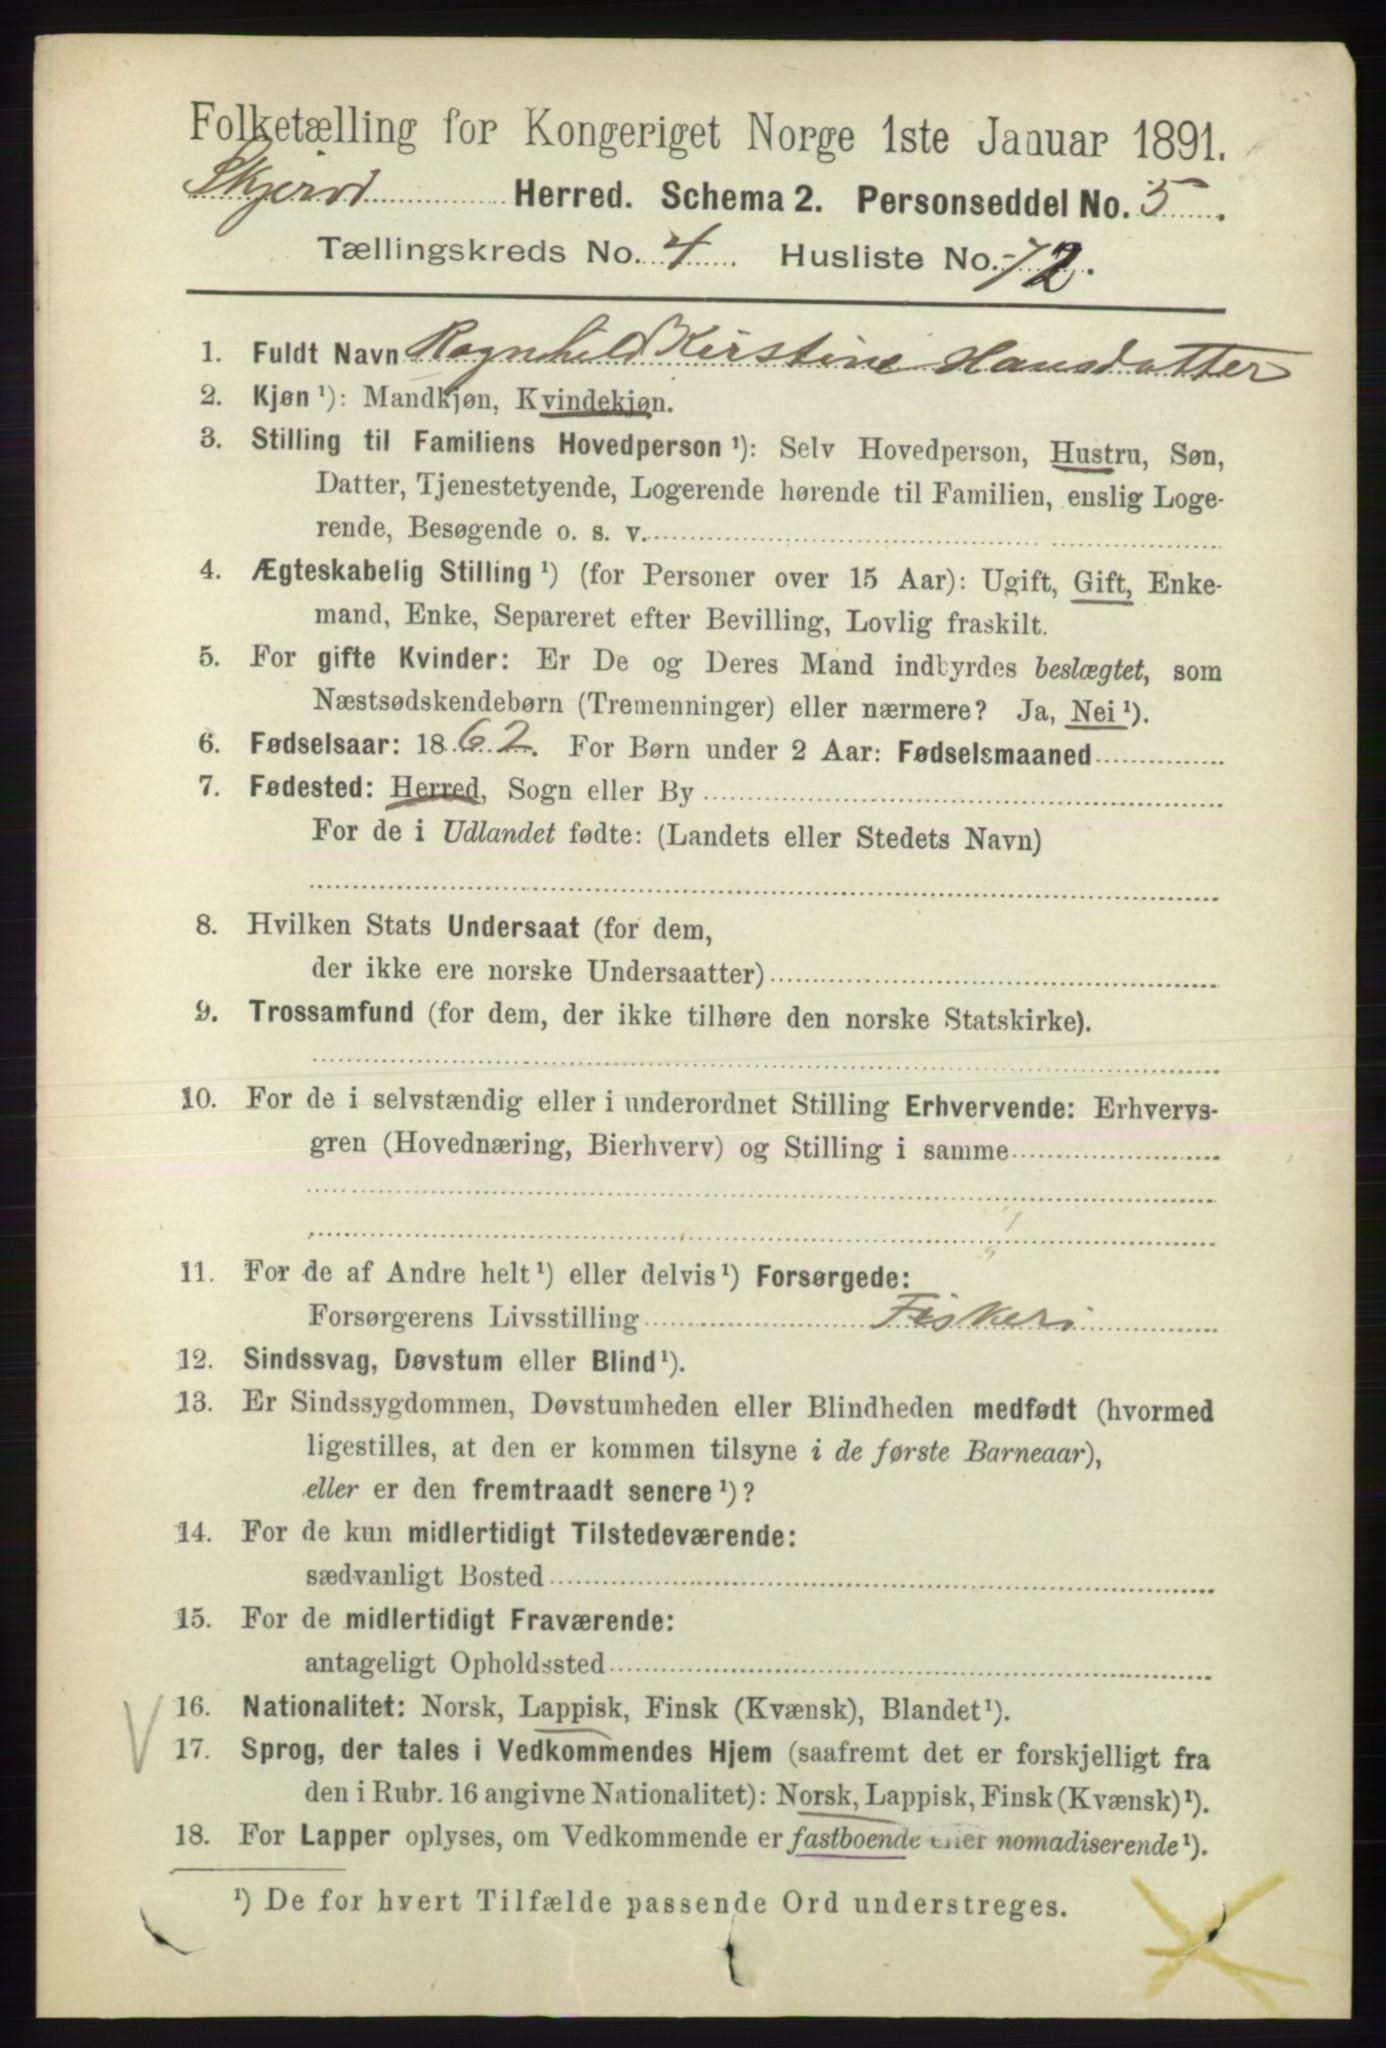 Folketælling for Kongeriget Norge 1ste Januar 1891.
Skjervø Herred. Schema 2. Personseddel No. 5.
Tællingskreds No. 4 Husliste No. 72.
1. Fuldt Navn Ragnhild Kirstine Hansdatter
2. Kjøn ¹): Mandkjøn, Kvindekjøn.
3. Stilling til Familiens Hovedperson ¹): Selv Hovedperson, Hustru, Søn,
Datter, Tjenestetyende, Logerende hørende til Familien, enslig Loge-
rende, Besøgende o. s. v.
4. Ægteskabelig Stilling ¹) (for Personer over 15 Aar): Ugift, Gift, Enke-
mand, Enke, Separeret efter Bevilling, Lovlig fraskilt.
5. For gifte Kvinder: Er De og Deres Mand indbyrdes beslægtet, som
Næstsødskendebørn (Tremenninger) eller nærmere? Ja, Nei ¹).
6. Fødselsaar: 1862. For Børn under 2 Aar: Fødselsmaaned
7. Fødested: Herred, Sogn eller By
For de i Udlandet fødte: (Landets eller Stedets Navn)
8. Hvilken Stats Undersaat (for dem,
der ikke ere norske Undersaatter)
9. Trossamfund (for dem, der ikke tilhøre den norske Statskirke).
10. For de i selvstændig eller i underordnet Stilling Erhvervende: Erhvervs-
gren (Hovednæring, Bierhverv) og Stilling i samme
11. For de af Andre helt ¹) eller delvis ¹) Forsørgede:
Forsørgerens Livsstilling Fiskeri
12. Sindssvag, Døvstum eller Blind ¹).
13. Er Sindssygdommen, Døvstumheden eller Blindheden medfødt (hvormed
ligestilles, at den er kommen tilsyne i de første Barneaar),
eller er den fremtraadt senere ¹)?
14. For de kun midlertidigt Tilstedeværende:
sædvanligt Bosted
15. For de midlertidigt Fraværende:
antageligt Opholdssted
16. Nationalitet: Norsk, Lappisk, Finsk (Kvænsk), Blandet ¹).
17. Sprog, der tales i Vedkommendes Hjem (saafremt det er forskjelligt fra
den i Rubr. 16 angivne Nationalitet): Norsk, Lappisk, Finsk (Kvænsk) ¹).
18. For Lapper oplyses, om Vedkommende er fastboende eller nomadiserende ¹).
¹) De for hvert Tilfælde passende Ord understreges.